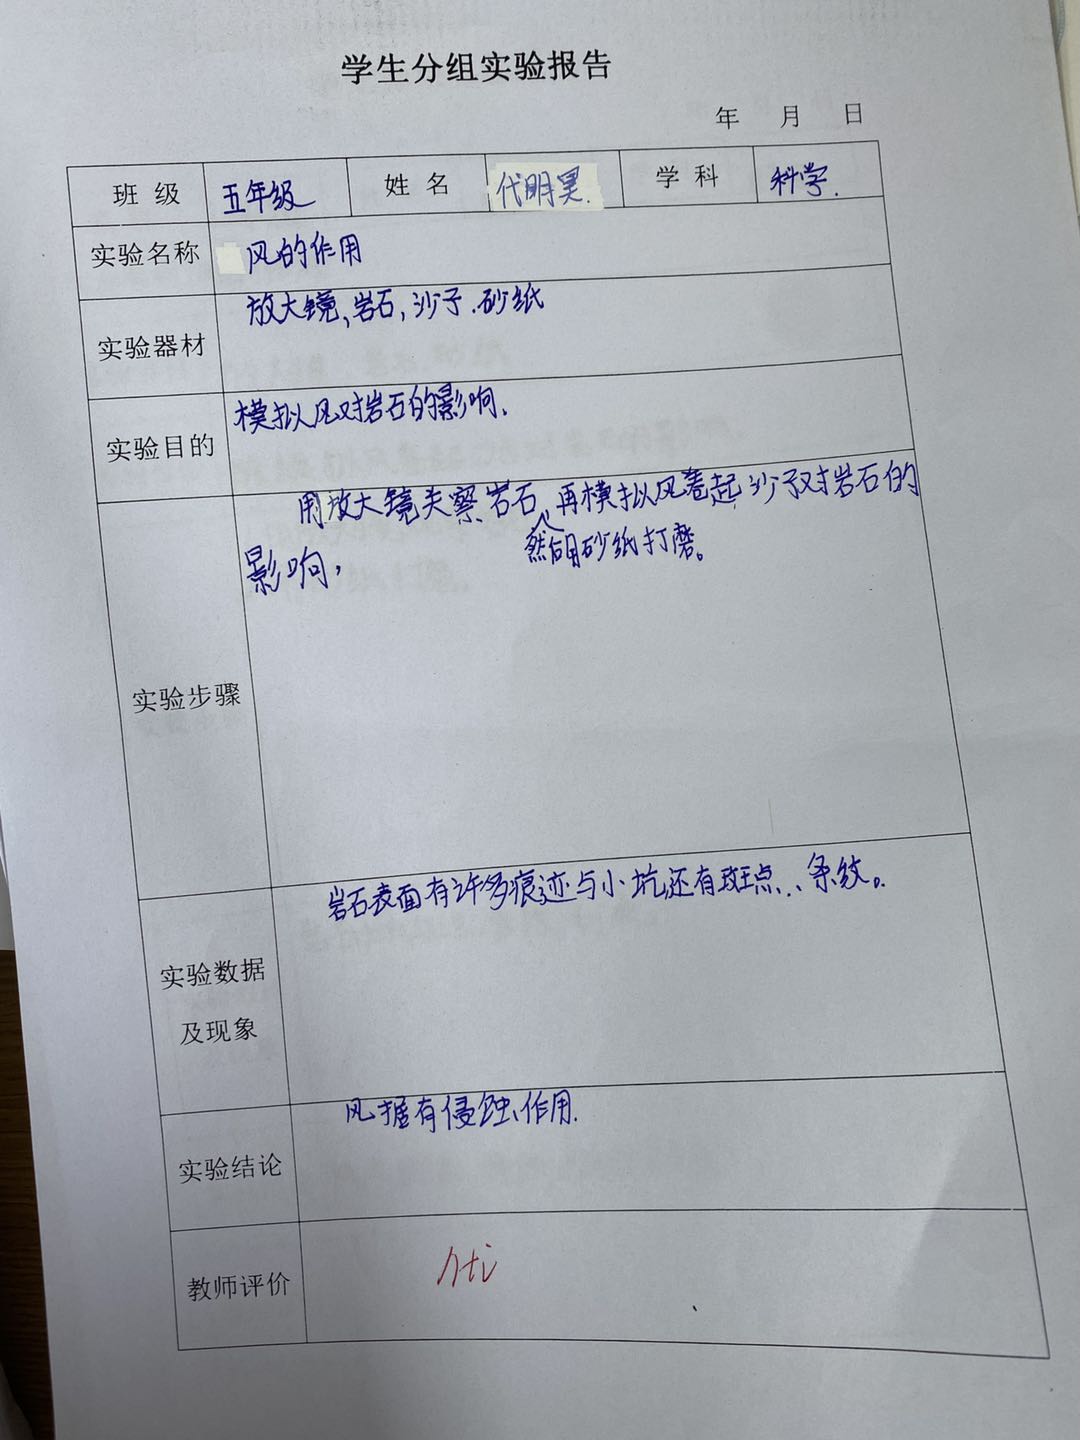 学生分组实验报告
年 月 日
班 级 五年级 姓 名 代明昊. 学 科 科学.
实验名称 风的作用
实验器材 放大镜,岩石,沙子.砂纸
实验目的 模拟风对岩石的影响.
用放大镜 察岩石,再模拟风卷起沙子对岩石的
影响, 然后用砂纸打磨。
实验步骤
岩石表面有许多痕迹与小坑,还有斑点、条纹。
实验数据
及现象
风 有侵蚀作用.
实验结论
教师评价